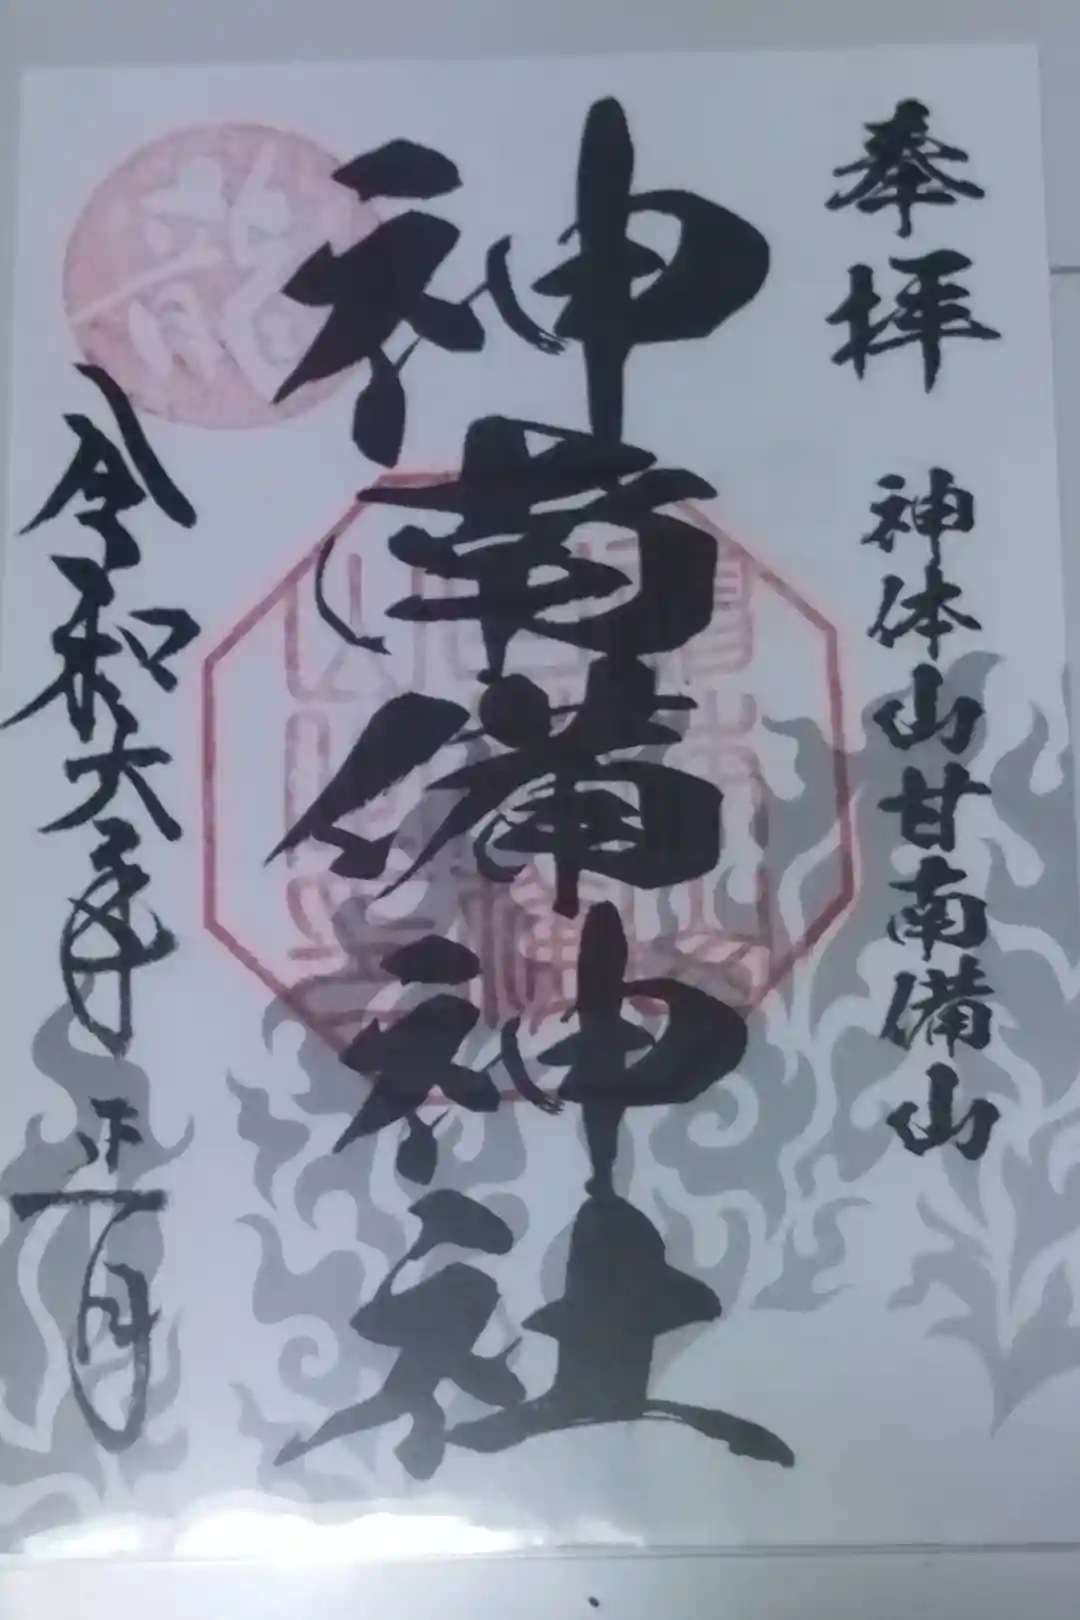 奉拝
神体山甘南備山
神南備神社
令和六年正月
龍